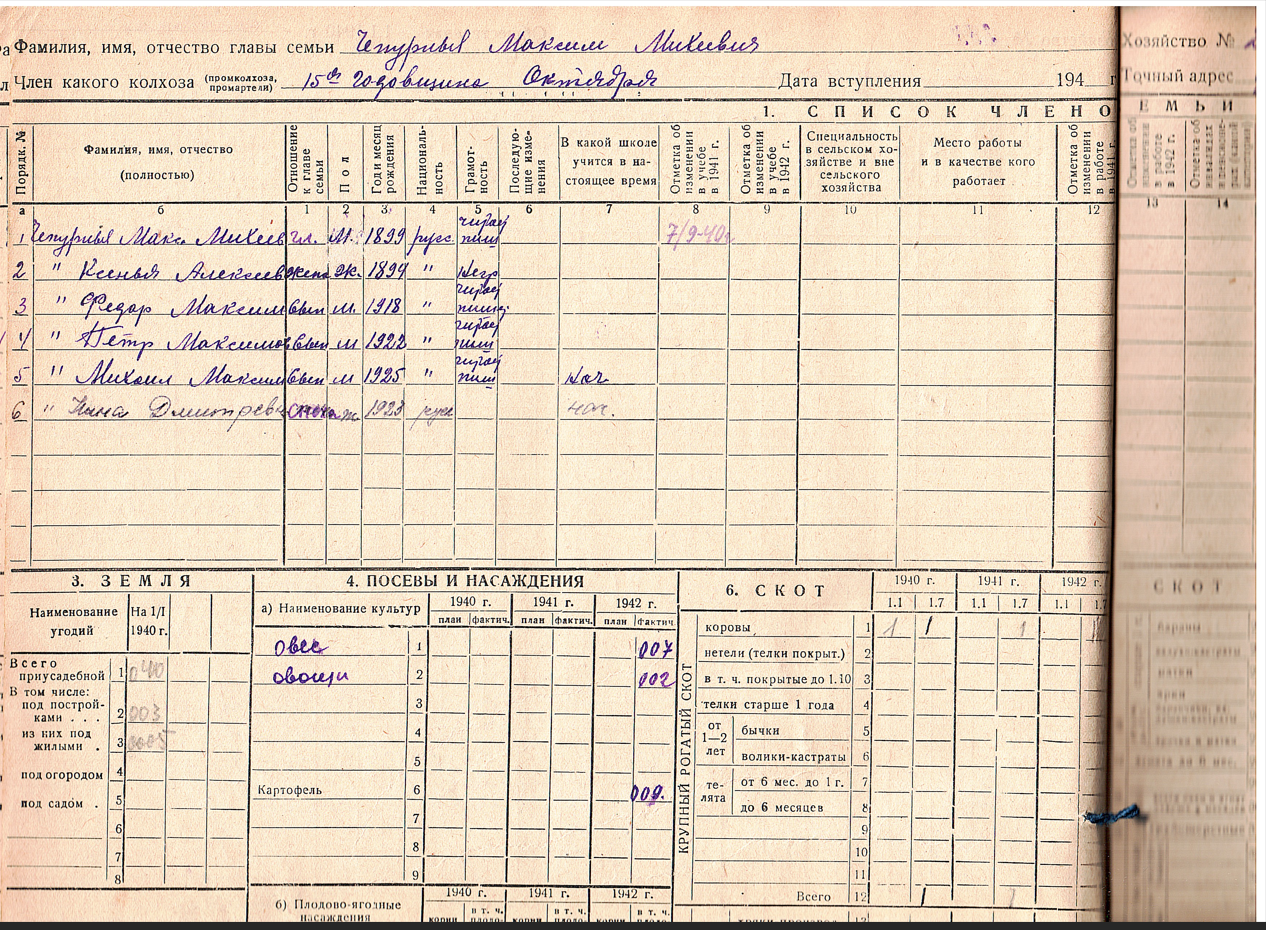 Фамилия, имя, отчество главы семьи Чепурный Максим Михеевич
Хозяйство №
Член какого колхоза (промколхоза, промартели) 15ая годовщина Октября Дата вступления 194 г
Точный адрес
1. СПИСОК ЧЛЕНО
ЕМЬИ
Порядк. №
Фамилия, имя, отчество (полностью)
Отношение к главе семьи
Пол
Год и месяц рождения
Националь-ность
Грамот-ность
Последую-щие изме-нения
В какой школе учится в на-стоящее время
Отметка об изменении в учебе в 1941 г.
Отметка об изменении в учебе в 1942 г.
Специальность в сельском хо-зяйстве и вне сельского хозяйства
Место работы и в качестве кого работает
Отметка об изменении в работе в 1941 г
а б 1 2 3 4 5 6 7 8 9 10 11 12 13 14
1 Чепурный Макс. Михеев гл. М. 1899 русс. читает пиш 7/9-40г
2 " Ксенья Алексеев жена ж. 1899 " Негр
3 " Федор Максим сын м. 1918 " читает пишет
4 " Петр Максимов сын м 1922 " читает пиш
5 " Михаил Максим сын м 1925 " читает пиш Нач
6 " Нина Дмитрев сноха ж. 1923 русс нач.
3. ЗЕМЛЯ
Наименование угодий
На 1/I 1940 г.
Всего приусадебной 1 040
В том числе:
под построй-ками . . . 2 003
из них под жилыми . 3 0005
под огородом 4
под садом . 5
6
7
8
4. ПОСЕВЫ И НАСАЖДЕНИЯ
а) Наименование культур
1940 г. 1941 г. 1942 г.
план фактич. план фактич. план фактич.
овес 1 007
овощи 2 002
3
4
5
Картофель 6 009.
7
8
9
б) Плодово-ягодные насаждения
1940 г. 1941 г. 1942 г.
корни в т. ч. плодо- корни в т. ч. плодо- корни в т. ч. плодо-
6. СКОТ
1940 г. 1941 г. 1942 г
1.1 1.7 1.1 1.7 1.1 1.7
КРУПНЫЙ РОГАТЫЙ СКОТ
коровы 1 1 1 1 1
нетели (телки покрыт.) 2
в т. ч. покрытые до 1.10 3
телки старше 1 года 4
от 1—2 лет
бычки 5
волики-кастраты 6
те-лята
от 6 мес. до 1 г. 7
до 6 месяцев 8
9
10
11
Всего 12 1 1
13
СКОТ